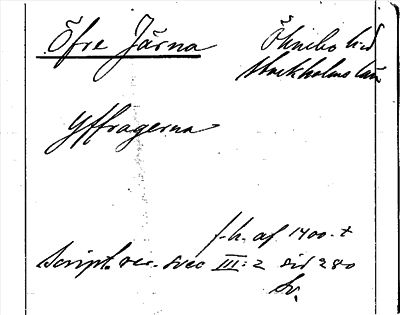 Öfre Järna
Öknebo h:d
Stockholms län
Yffragerna
f. h. af 1400-t
Script. rer. svec III: 2 sid 280
Sv.